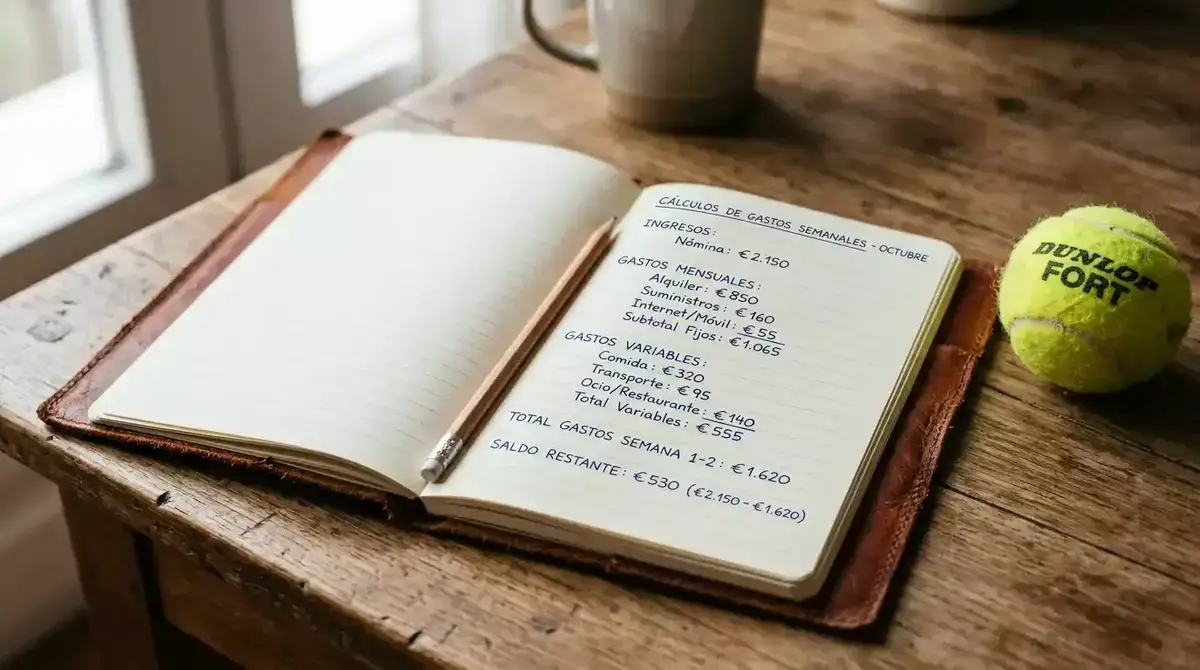 CÁLCULOS DE GASTOS SEMANALES - OCTUBRE
INGRESOS:
Nómina: €2.150
GASTOS MENSUALES:
Alquiler: €850
Suministros: €160
Internet/Móvil: €55
Subtotal Fijos: €1.065
GASTOS VARIABLES:
Comida: €320
Transporte: €95
Ocio/Restaurante: €140
Total Variables: €555
TOTAL GASTOS SEMANA 1-2: €1.620
SALDO RESTANTE: €530 (€2.150-€1.620)
DUNLOP
FORT